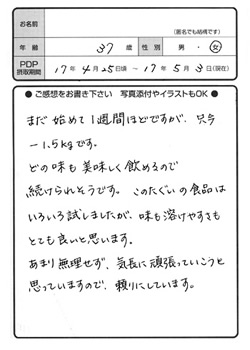 お名前
(匿名でも結構です)
年齢 37 歳 性別 男・女
PDP摂取期間 17年4月25日頃 ~ 17年5月3日(現在)
● ご感想をお書き下さい 写真添付やイラストもOK ●
まだ始めて1週間ほどですが、只今
-1.5kgです。
どの味も美味しく飲めるので
続けられそうです。このたぐいの食品は
いろいろ試しましたが、味も溶けやすさも
とても良いと思います。
あまり無理せず、気長に頑張っていこうと
思っていますので、頼りにしています。